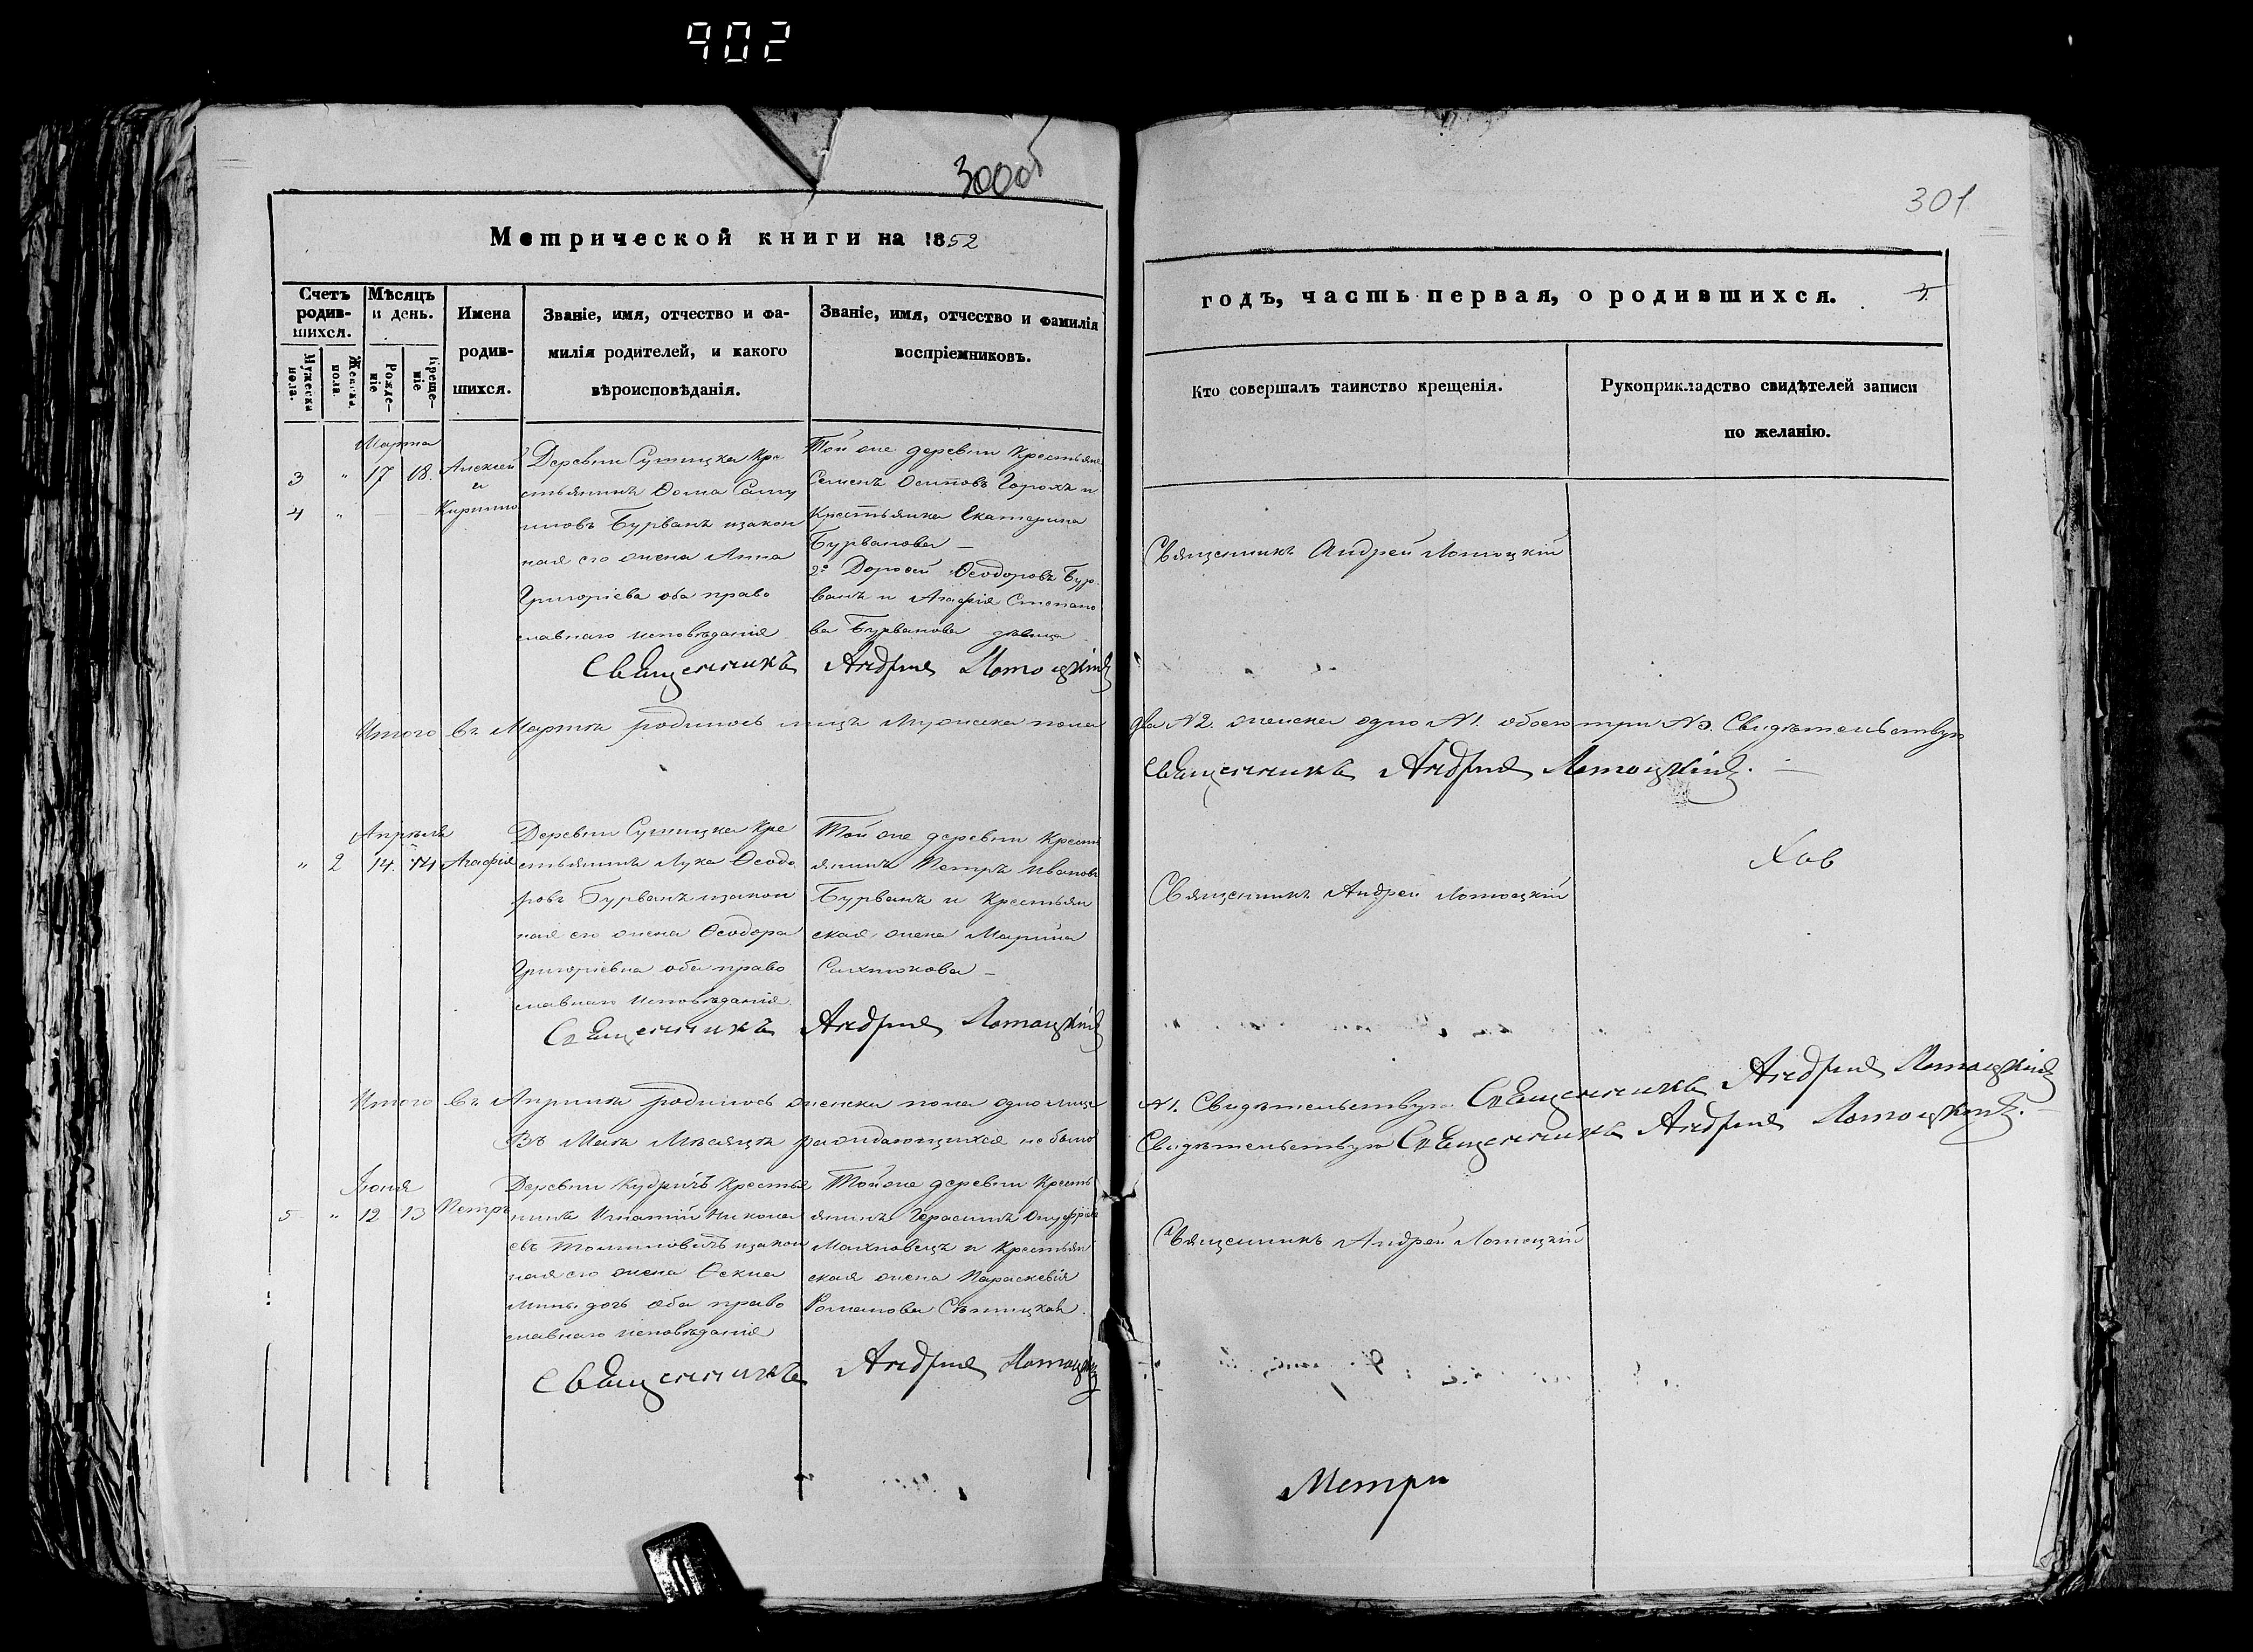 902
300 об
301
Метрической книги на 1852
годъ, часть первая, о родившихся. 3.
Счетъ родив-
шихся.
Мужеска пола.
Женска. пола.
Мѣсяцъ и день.
Рожде-
ніе
Креще-
ніе
Имена
родив-
шихся.
Званіе, имя, отчество и фа-
милія родителей, и какого
вѣроисповѣданія.
Званіе, имя, отчество и фамилія
воспріемниковъ.
Кто совершалъ таинство крещенія.
Рукоприкладство свидѣтелей записи
по желанію.
Марта
3 " 17 18. Алексѣй
и
4 " — — Кирилло
Деревни Сушицка Кре
стьянинъ Ѳома Саму
иловъ Бурванъ изакон
ная его жена Анна
Григоріева оба право
славнаго исповѣданія
Той же деревни Крестьяне
Семенъ Осиповъ Горохъ и
Крестьянка Екатерина
Бурванова —
2е Дороѳей Ѳеодоровъ Бур
ванъ и Агафія Степано
ва Бурванова дѣвица
Священникъ Андрей Лотоцкій
Священникъ Андрей Лотоцкій
Итого въ Мартѣ родилось лицъ Мужеска пола
два N2. женска одно N1. обоего три N3. Свидѣтельствую
Священникъ Андрей Лотоцкій. —
Апрѣля
" 2 14. 14 Агафія
Деревни Сушицка Кре
стьянинъ Лука Ѳеодо
ровъ Бурванъ изакон
ная его жена Ѳеодора
Григоріевна оба право
славнаго исповѣданія.
Той же деревни Кресть
янинъ Петръ Ивановъ
Бурванъ и Крестьян
ская жена Марина
Сахнюкова —
Священникъ Андрей Лотоцкій
Священникъ Андрей Лотоцкій
Хов
Итого въ Априлѣ родилось женска пола одно лице
N1. Свидѣтельствую Священникъ Андрей Лотоцкій
Въ Маѣ Мѣсяцѣ раждающихся не было
Свидѣтельствую Священникъ Андрей Лотоцкій. —
Іюня
5 " 12 13 Петръ
Деревни Кудричъ Крестья
нинъ Игнатій Никола
евъ Томиловичъ изакон
ная его жена Ѳекла
Мин. дочь оба право
славнаго исповѣданія
Той же деревни Кресть
янинъ Герасимъ Онуфріев
Махновецъ и Крестьян
ская жена Параскевія
Романова Сѣницкая.
Священникъ Андрей Лотоцкій
Священникъ Андрей Лотоцкій
Метри